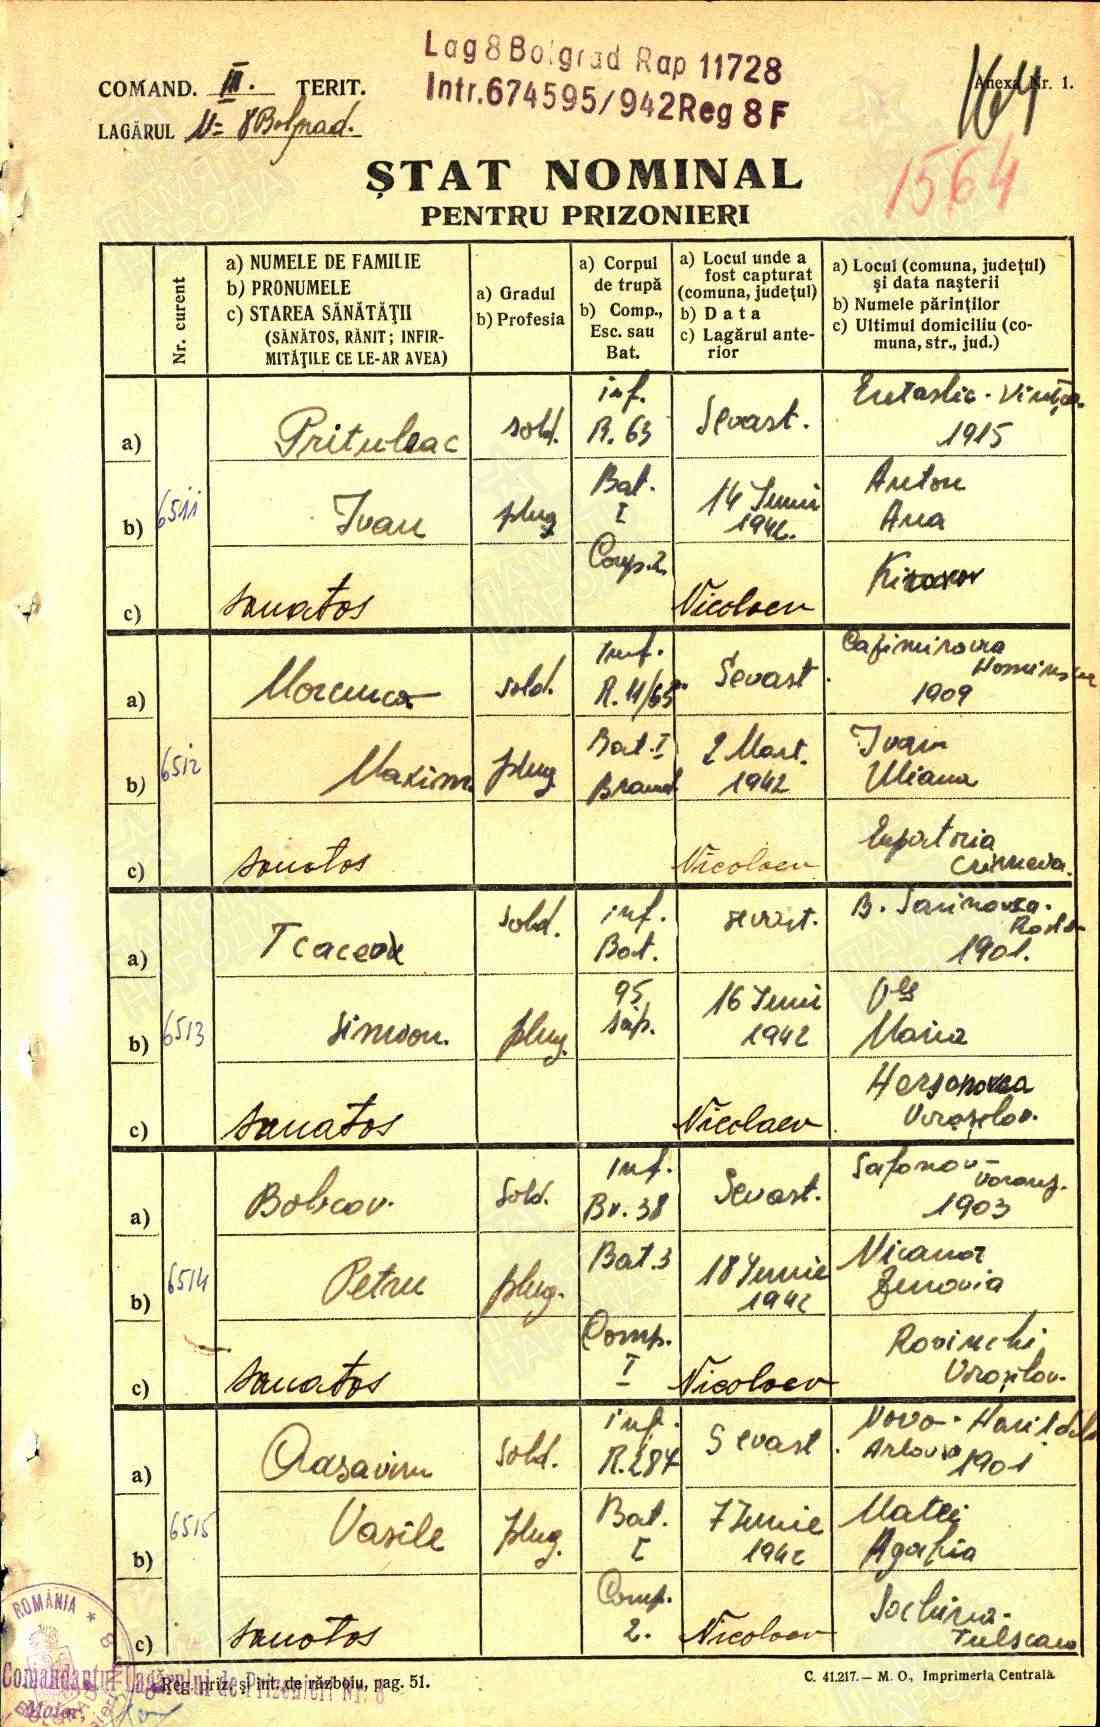 Lag 8 Bolgrad Rap 11728
Intr. 674595/942 Reg 8 F
COMAND. III. TERIT.
Anexa Nr. 1.
164
LAGĂRUL No 8 Bolgrad.
1564
ȘTAT NOMINAL
PENTRU PRIZONIERI
Nr. curent
a) NUMELE DE FAMILIE
b) PRONUMELE
c) STAREA SĂNĂTĂŢII
(SĂNĂTOS, RĂNIT; INFIR-
MITĂŢILE CE LE-AR AVEA)
a) Gradul
b) Profesia
a) Corpul
de trupă
b) Comp.,
Esc. sau
Bat.
a) Locul unde a
fost capturat
(comuna, județul)
b) Data
c) Lagărul ante-
rior
a) Locul (comuna, județul)
și data nașterii
b) Numele părinților
c) Ultimul domiciliu (co-
muna, str., jud.)
6511
a) Prituleac sold. inf. R. 63 Sevast. 1915
b) Ivan plug Bat. I 14 Iunii 1942. Anton Ana
c) sanatos Comp. 2. Nicolaev
6512
a) sold. Inf. Sevast. 1909
b) Maxim plug. Bat. I 2 Mart. 1942 Ivan Uliana
c) sanatos Nicolaev Eupatoria
6513
a) sold. inf. Bat. 1901.
b) Simion. plug. 95 sap. 16 Iunii 1942 Maria
c) sanatos Nicolaev Voroșilov.
6514
a) Bobcov. sold. Inf. Br. 38 Sevast. Safonov - 1903
b) Petru plug. Bat. 3 18 Iunie 1942 Nicanor Zenovia
c) sanatos Comp. I Nicolaev Voroșilov.
6515
a) sold. inf. R. 287 Sevast. Novo - 1901
b) Vasile plug. Bat. I 7 Iunie 1942 Matei Agafia
c) sanatos Comp. 2. Nicolaev
ROMÂNIA * 8
Comandantul Lagărului de Prizonieri Nr. 8
Maior,
Reg. priz. și int. de război, pag. 51.
C. 41.217. — M. O., Imprimeria Centrală